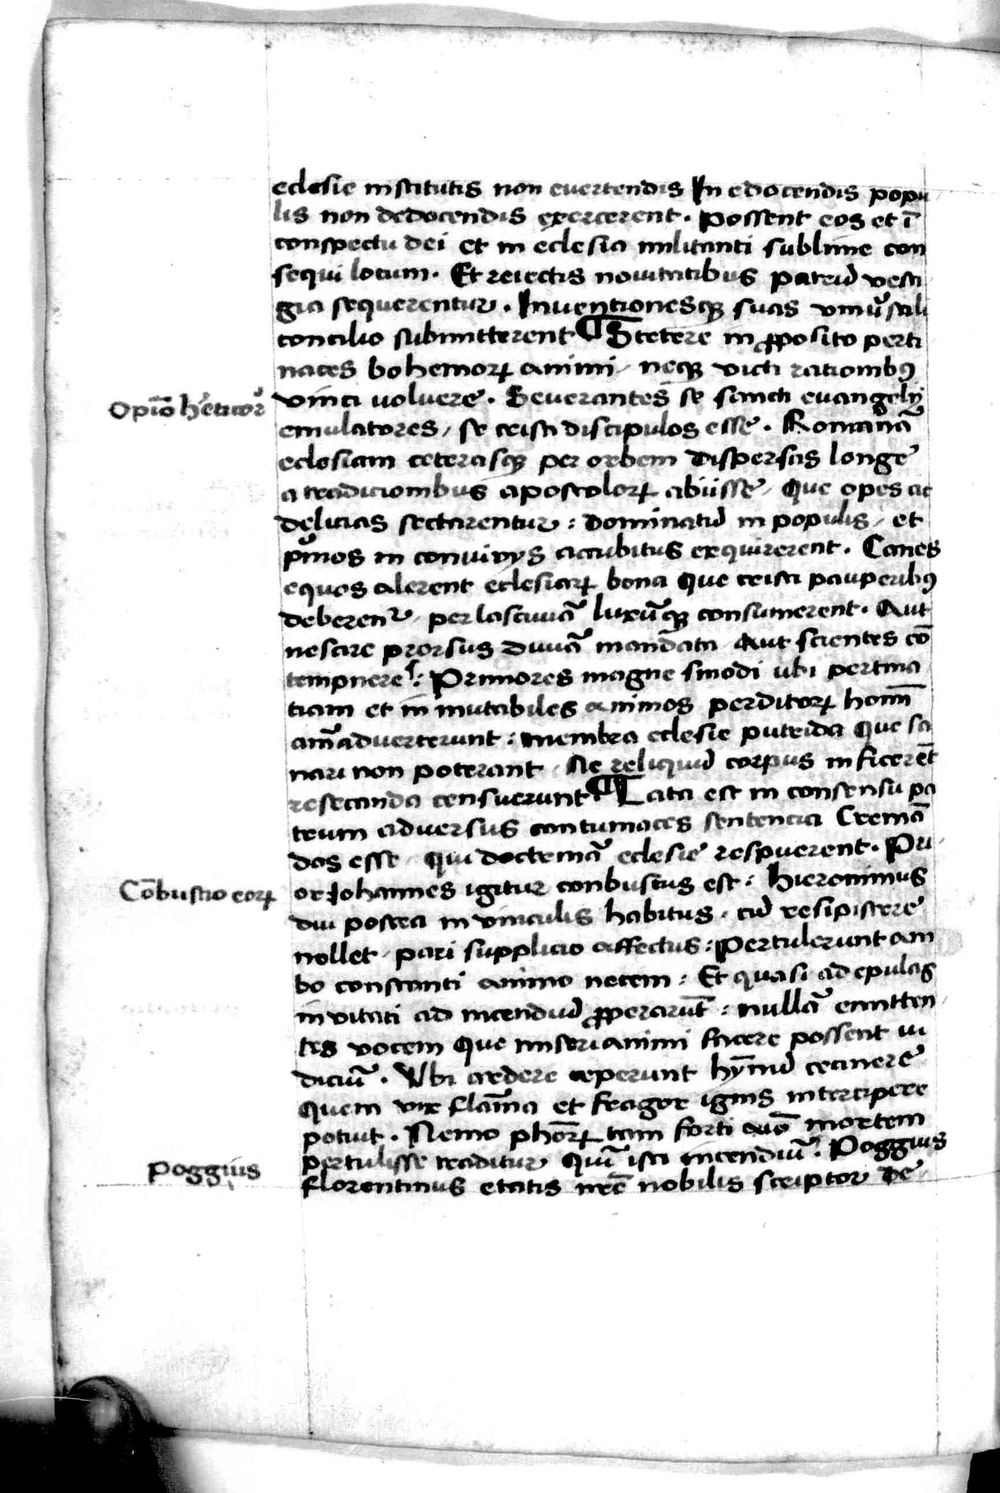 eclesie institutis non euertendis In edocendis popu
lis non dedocendis exercerent. possent eos et ī
conspectu dei et in eclesia militanti sublime con
sequi locum. Et reiectis nouitatibus patrū vesti
gia sequerentur. Inuentionesqꝫ suas vniu͛sali
concilio submitterent ¶ Stetere in ꝓposito perti
naces bohemoꝝ animi / neqꝫ victi rationibꝰ
Opiō h'eticoꝝ
vinci uoluere. Seuerantes se sancti euangelij
emulatores / se cristi discipulos esse. Romanā
eclesiam ceterasqꝫ per orbem dispersas longe
a tradicionibus apostoloꝝ abiisse / Que opes ac
delicias sectarentur : dominatū in populis / et
pͥmos in conuiuijs accubitus exquirerent. Canes
equos alerent eclesiaꝝ bona Que cristi pauperibꝰ
deberenᵗ / per lasciuiā luxūqꝫ consumerent. Aut
nescire prorsus diuīa mandata Aut scientes cō
tempnere : Primores magne sinodi ubi pertina
tiam et inmutabiles animos perditoꝝ homī
aīaduerterunt : membra eclesie putrida Que sa
nari non poterant / Ne reliquū corpus inficerēt
resecanda censuerunt ¶ Lata est in consensu pa
trum aduersus contumaces sentencia Cremā
dos esse / Qui doctrinā eclesie respuerent. Pri
Cōbustio eoꝝ
or Johannes igitur conbustus est : hieronimus
diu postea in vinculis habitus / cū resipiscere
nollet / pari supplicio affectus : Pertulerunt am
bo constanti animo necem : Et quasi ad epulas
inuitati ad incendiū ꝓperarūt : nullā emitten
tes vocem Que miseri animi facere possent iu
diciū. Vbi ardere ceperunt hȳnū cecinere
Quem vix flāma et fragor ignis intercipere
potuit. Nemo phōꝝ tam forti aīo mortem
pertulisse traditur Quā isti incendiū. Poggius
Poggius
florentinus etatis nrē nobilis scriptor de